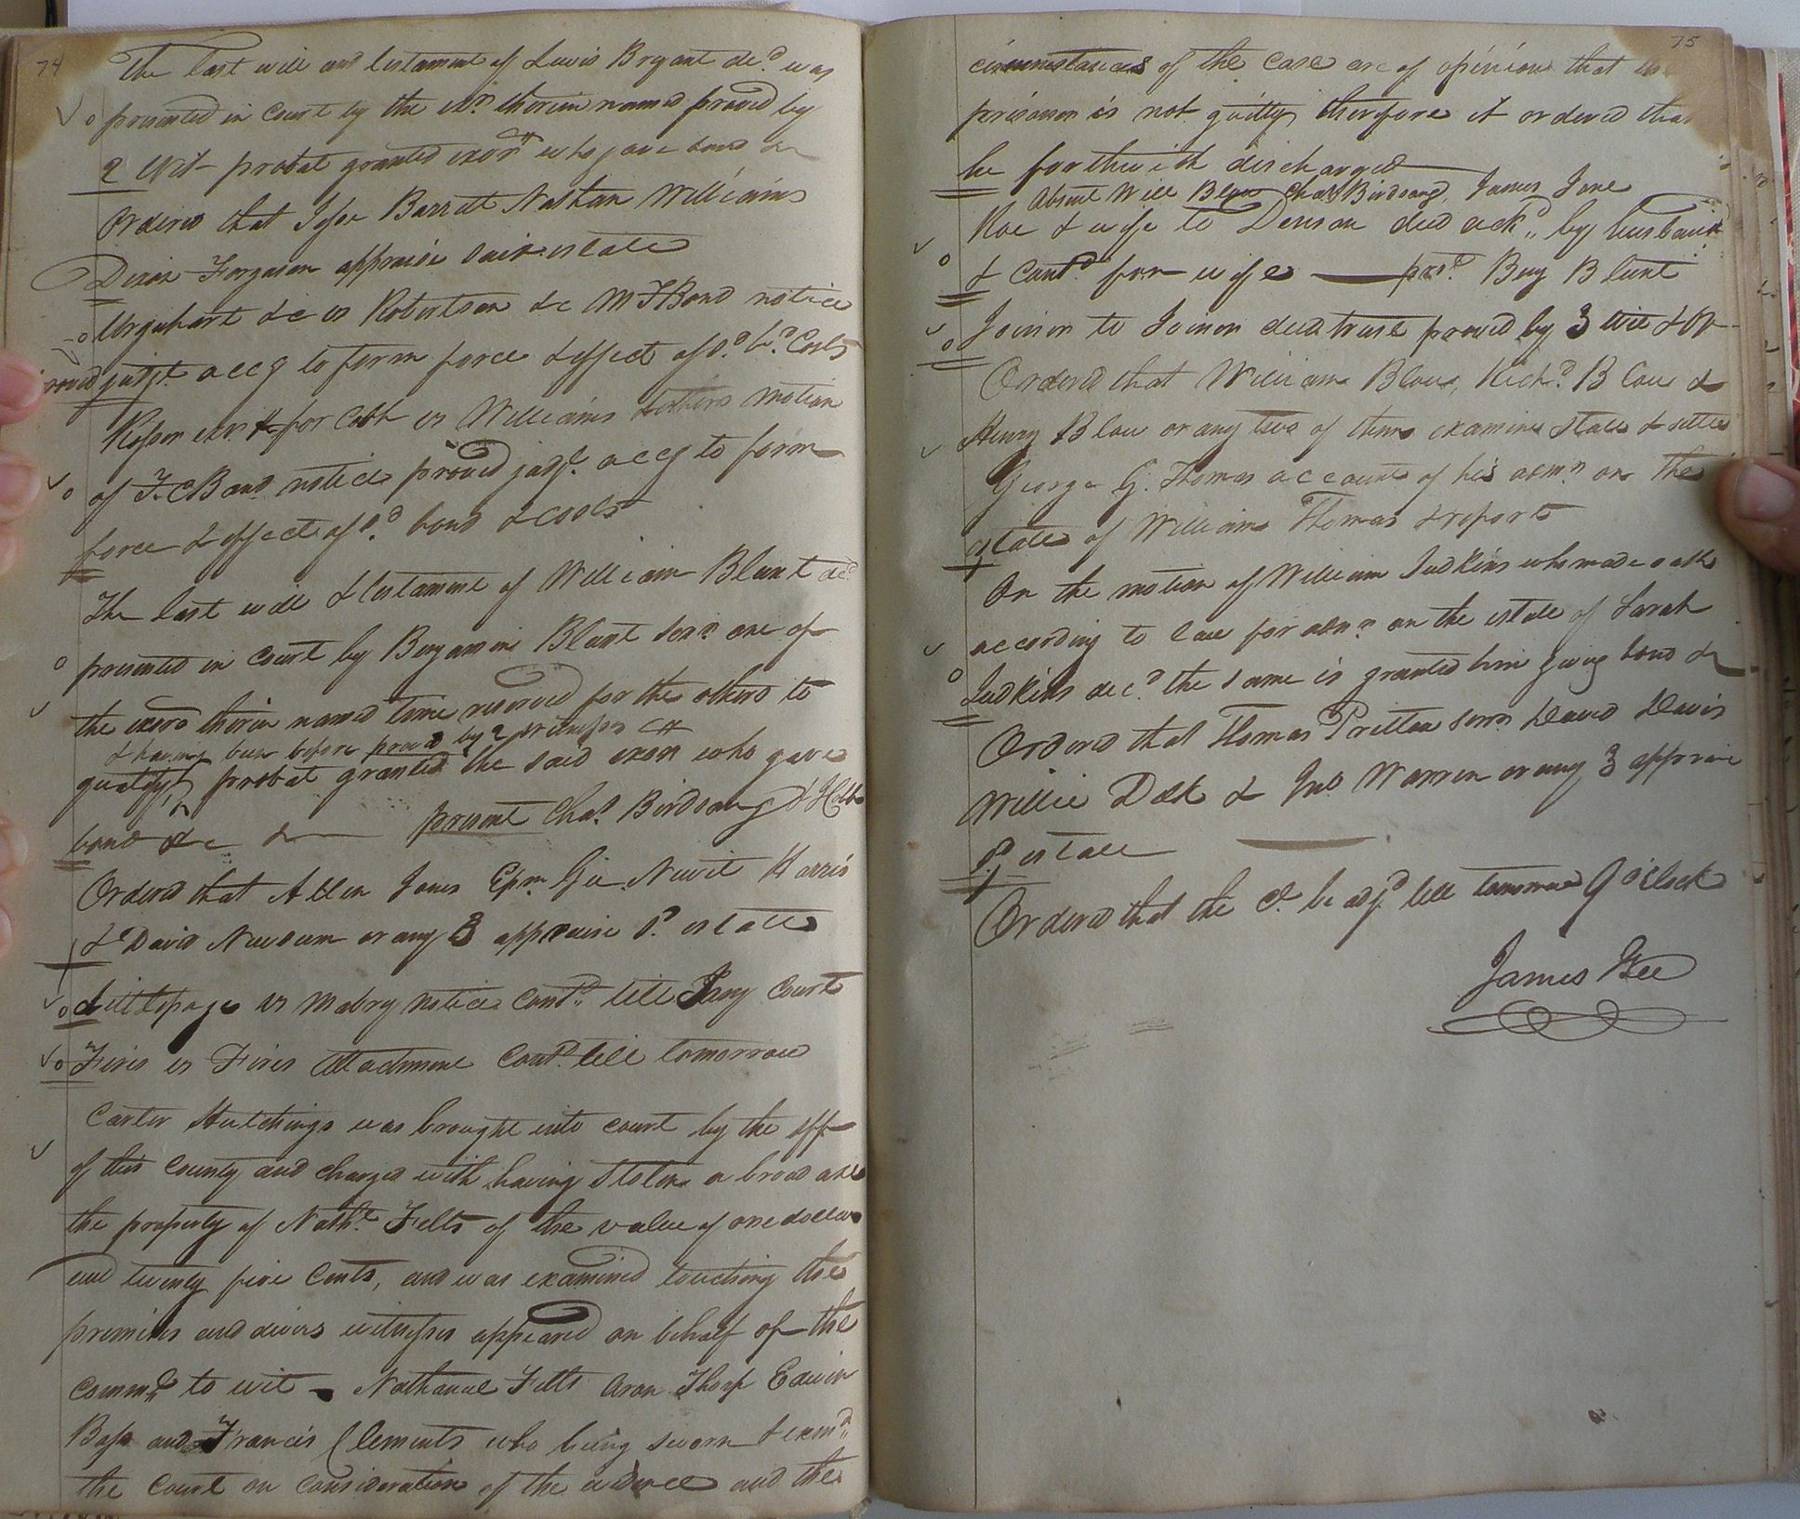 74
The last will and testament of Lewis Bryant decd was
presented in Court by the exr therein named proved by
2 Wit probat granted exor who gave bond &c
Ordered that Jesse Barrett Nathan Williams
Dixon Ferguson appraise said estate
Urquhart &c vs Robertson &c M T Bond notice
proved judgt accg to form force & effect of sd bd Costs
exr for Cobb vs Williams & others motion
of F. C Bond notice proved judgt accg to form
force & effect of sd bond & costs
The last will & testament of William Blunt decd
presented in Court by Benjamin Blunt senr one of
the exors therein named time reserved for the others to
& having been before proved by 2 witnesses
qualify, probat granted the said exor who gave
bond &c &c present Chas Birdsong &
Ordered that Allen Jones Epm Gee Newit Harris
& David Newsum or any 3 appraise sd estate
Littlepage vs Mabry notice contd till Jany Court
Fires vs Fires Attachment Contd till tomorrow
Carter Hutchings was brought into court by the sff
of this County and charged with having stolen a broad axe
the property of Nathl Felts of the value of one dollar
and twenty five Cents, and was examined touching the
premises and divers witnesses appeared on behalf of the
Commth to wit Nathaniel Felts Aron Thorp Edwin
Bass and Francis Clements who being sworn & examd
the Court on consideration of the evidence and the
75
circumstances of the case are of opinion that the
prisoner is not guilty, therefore it ordered that
he forthwith discharged
Absent Will Blow Chas Birdsong, James Jone
Roe & wife to Denson deed ackd by husband
& contd for wife prst Benj Blunt
Joiner to Joiner deed trust proved by 3 wit & OR
Ordered that William Blow, Richd Blow &
Henry Blow or any two of them examine state & settle
George G. Thomas account of his admn on the
estate of William Thomas & report
On the motion of William Judkins who made oath
according to law for admn on the estate of Sarah
Judkins decd the same is granted him giving bond &c
Ordered that Thomas Pretlow senr David Davis
Willie Dosk & Jno Warren or any 3 appraise
sd estate
Ordered that the Ct be adjd till tomorrow 9 oClock
James Gee